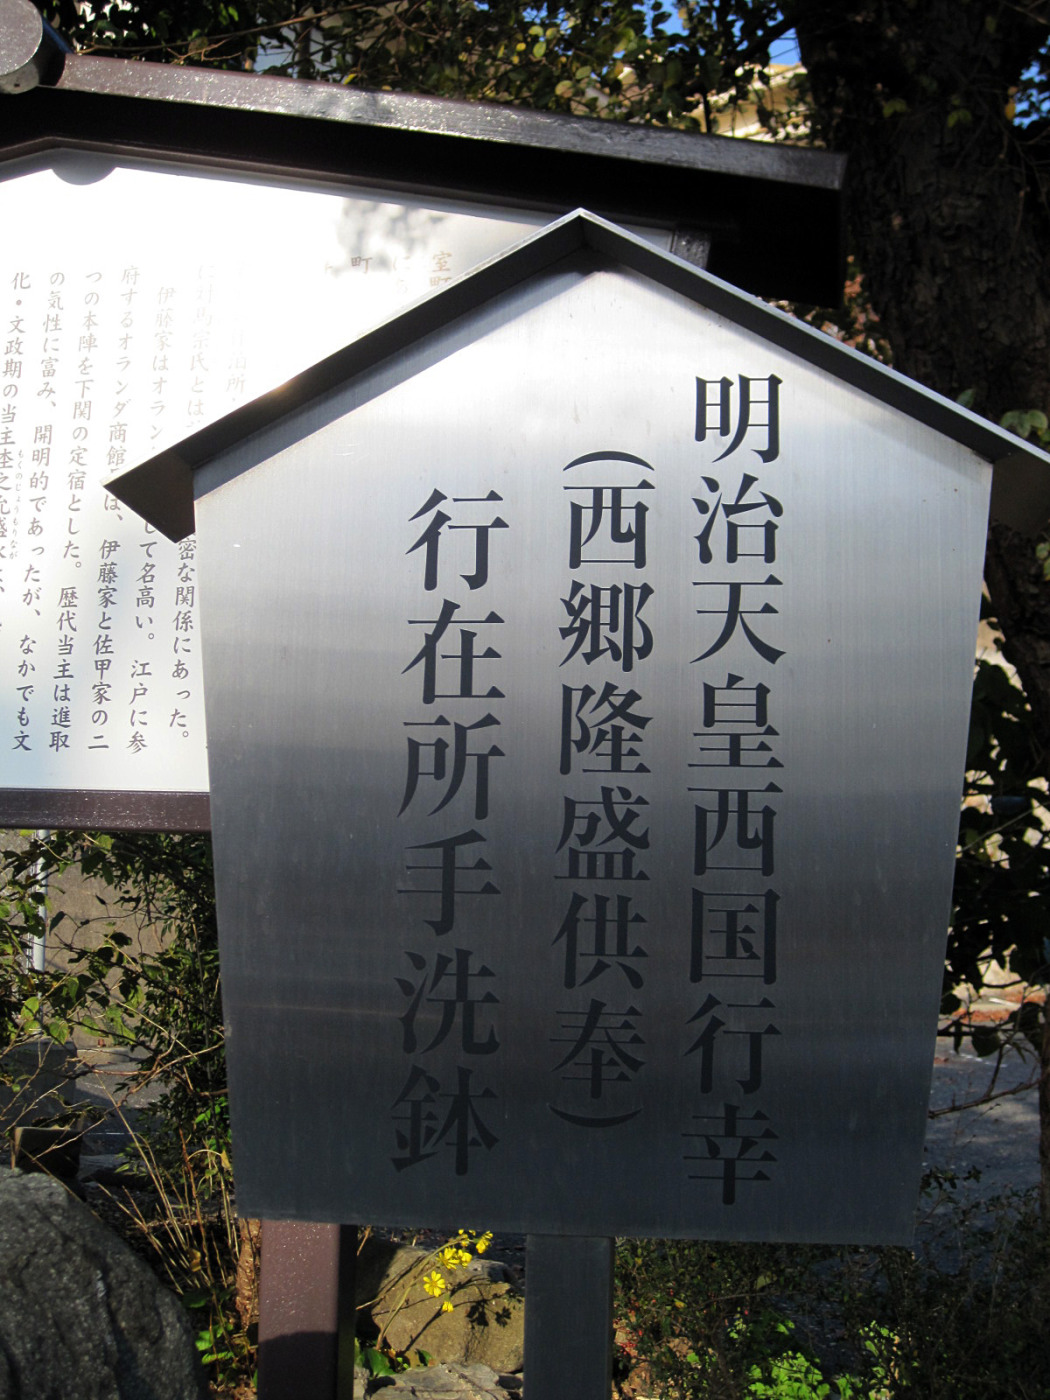 明治天皇西国行幸
(西郷隆盛供奉)
行在所手洗鉢
室
町
密な関係にあった。
伊藤家はオラン
して名高い。江戸に参
府するオランダ商館
は、伊藤家と佐甲家の二
つの本陣を下関の定宿とした。歴代当主は進取
の気性に富み、開明的であったが、なかでも文
化・文政期の当主杢之允盛
もくのじょうもりなが